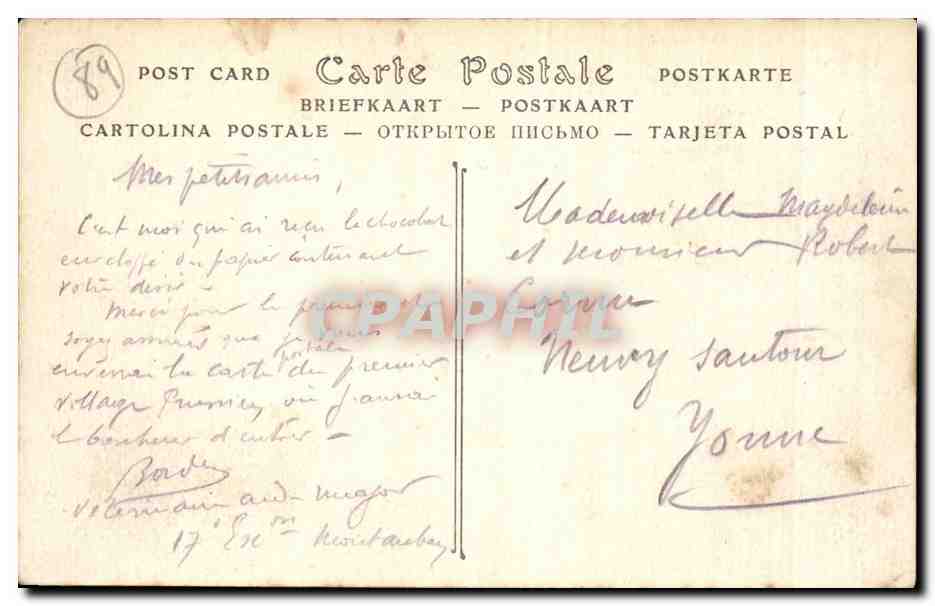 89
POST CARD Carte Postale POSTKARTE
BRIEFKAART — POSTKAART
CARTOLINA POSTALE — ОТКРЫТОЕ ПИСЬМО — TARJETA POSTAL
Mes petits amis,
C'est moi qui ai reçu le chocolat
enveloppé du papier contenant
votre désir -
Merci pour le premier et
soyez assurés que je vous
enverrai la carte postale du premier
village Prussien où j'aurai
le bonheur d'entrer -
Vétérinaire aide-major
17e Esc on Montauban
Mademoiselle Magdeleine
et monsieur Robert
Cornu
Neuvy Sautour
Yonne
CPAPHIL